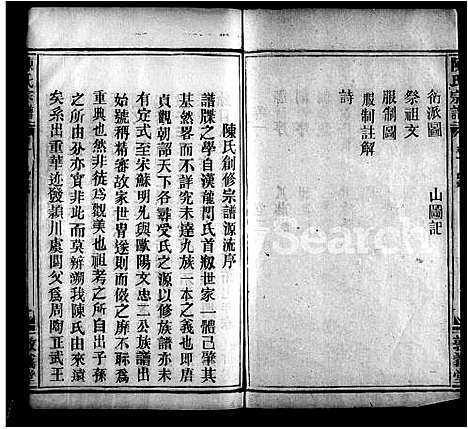 陳氏宗譜
衍派圖　山圖記
祭祖文
服制圖
服制註解
詩
敦義堂
陳氏創修宗譜源流序
譜牒之學自漢龍門氏首叙世家一體己肇其
基然畧而不詳究未逹九族一本之義也即唐
貞觀朝詔天下各尋受氏之源以修族譜亦未
有定式至宋蘇明允與歐陽文忠二公族譜出
始號稱精審故家世胄遂則而倣之靡不聮為
重典也然非徒為觀美也将以自出子孫
之所由分亦實非此而莫辦溯我陳氏由來遠
矣系出重華迹發潁川虞閼父為周陶正武王
Search